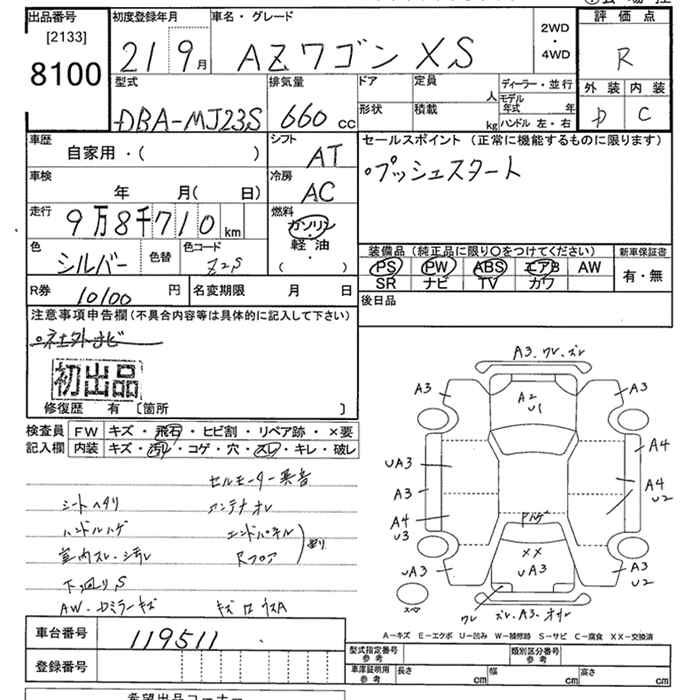 出品番号
[2133]
8100
初度登録年月
21 9月
車名・グレード
AZワゴン XS
2WD
・
4WD
評価点
R
外装 内装
D C
型式
DBA-MJ23S
排気量
660 cc
ドア
定員
人
形状
積載
kg
ディーラー・並行
モデル年式 年
ハンドル 左・右
車歴
自家用・( )
シフト
AT
車検
年 月( 日)
冷房
AC
走行
9万8千710 km
燃料
ガソリン
・
軽油
( )
色
シルバー
色替
色コード
Z2S
R券
10100 円
名変期限 月 日
セールスポイント (正常に機能するものに限ります)
プッシュスタート
装備品 (純正品に限り○をつけてください)
PS PW ABS エアB AW
SR ナビ TV カワ
新車保証書
有・無
後日品
注意事項申告欄 (不具合内容等は具体的に記入して下さい)
社外ナビ
初出品
修復歴 有 [箇所 ]
検査員 FW キズ・飛石・ヒビ割・リペア跡・×要
記入欄 内装 キズ・汚レ・コゲ・穴・スレ・キレ・破レ
セルモーター異音
シートヘタリ アンテナオレ
ハンドルハゲ エンドパネル
室内スレ・シミ汚レ Rフロア
下回りS
AW・Dミラーキズ
A3.ワレ.ズレ
A3
A2
U1
A3
UA3
A3
A4
U3
UA3
A4
A4
U2
A3
U2
ドハゲ
××
UA3
スペア
ワレ
ズレ.A3.オサレ
A−キズ E−エクボ U−凹み W−補修跡 S−サビ C−腐食 XX−交換済
車台番号
119511
登録番号
型式指定番号
参考
類別区分番号
参考
車庫証明用
参考
長さ cm
幅 cm
高さ cm
希望出品コーナー